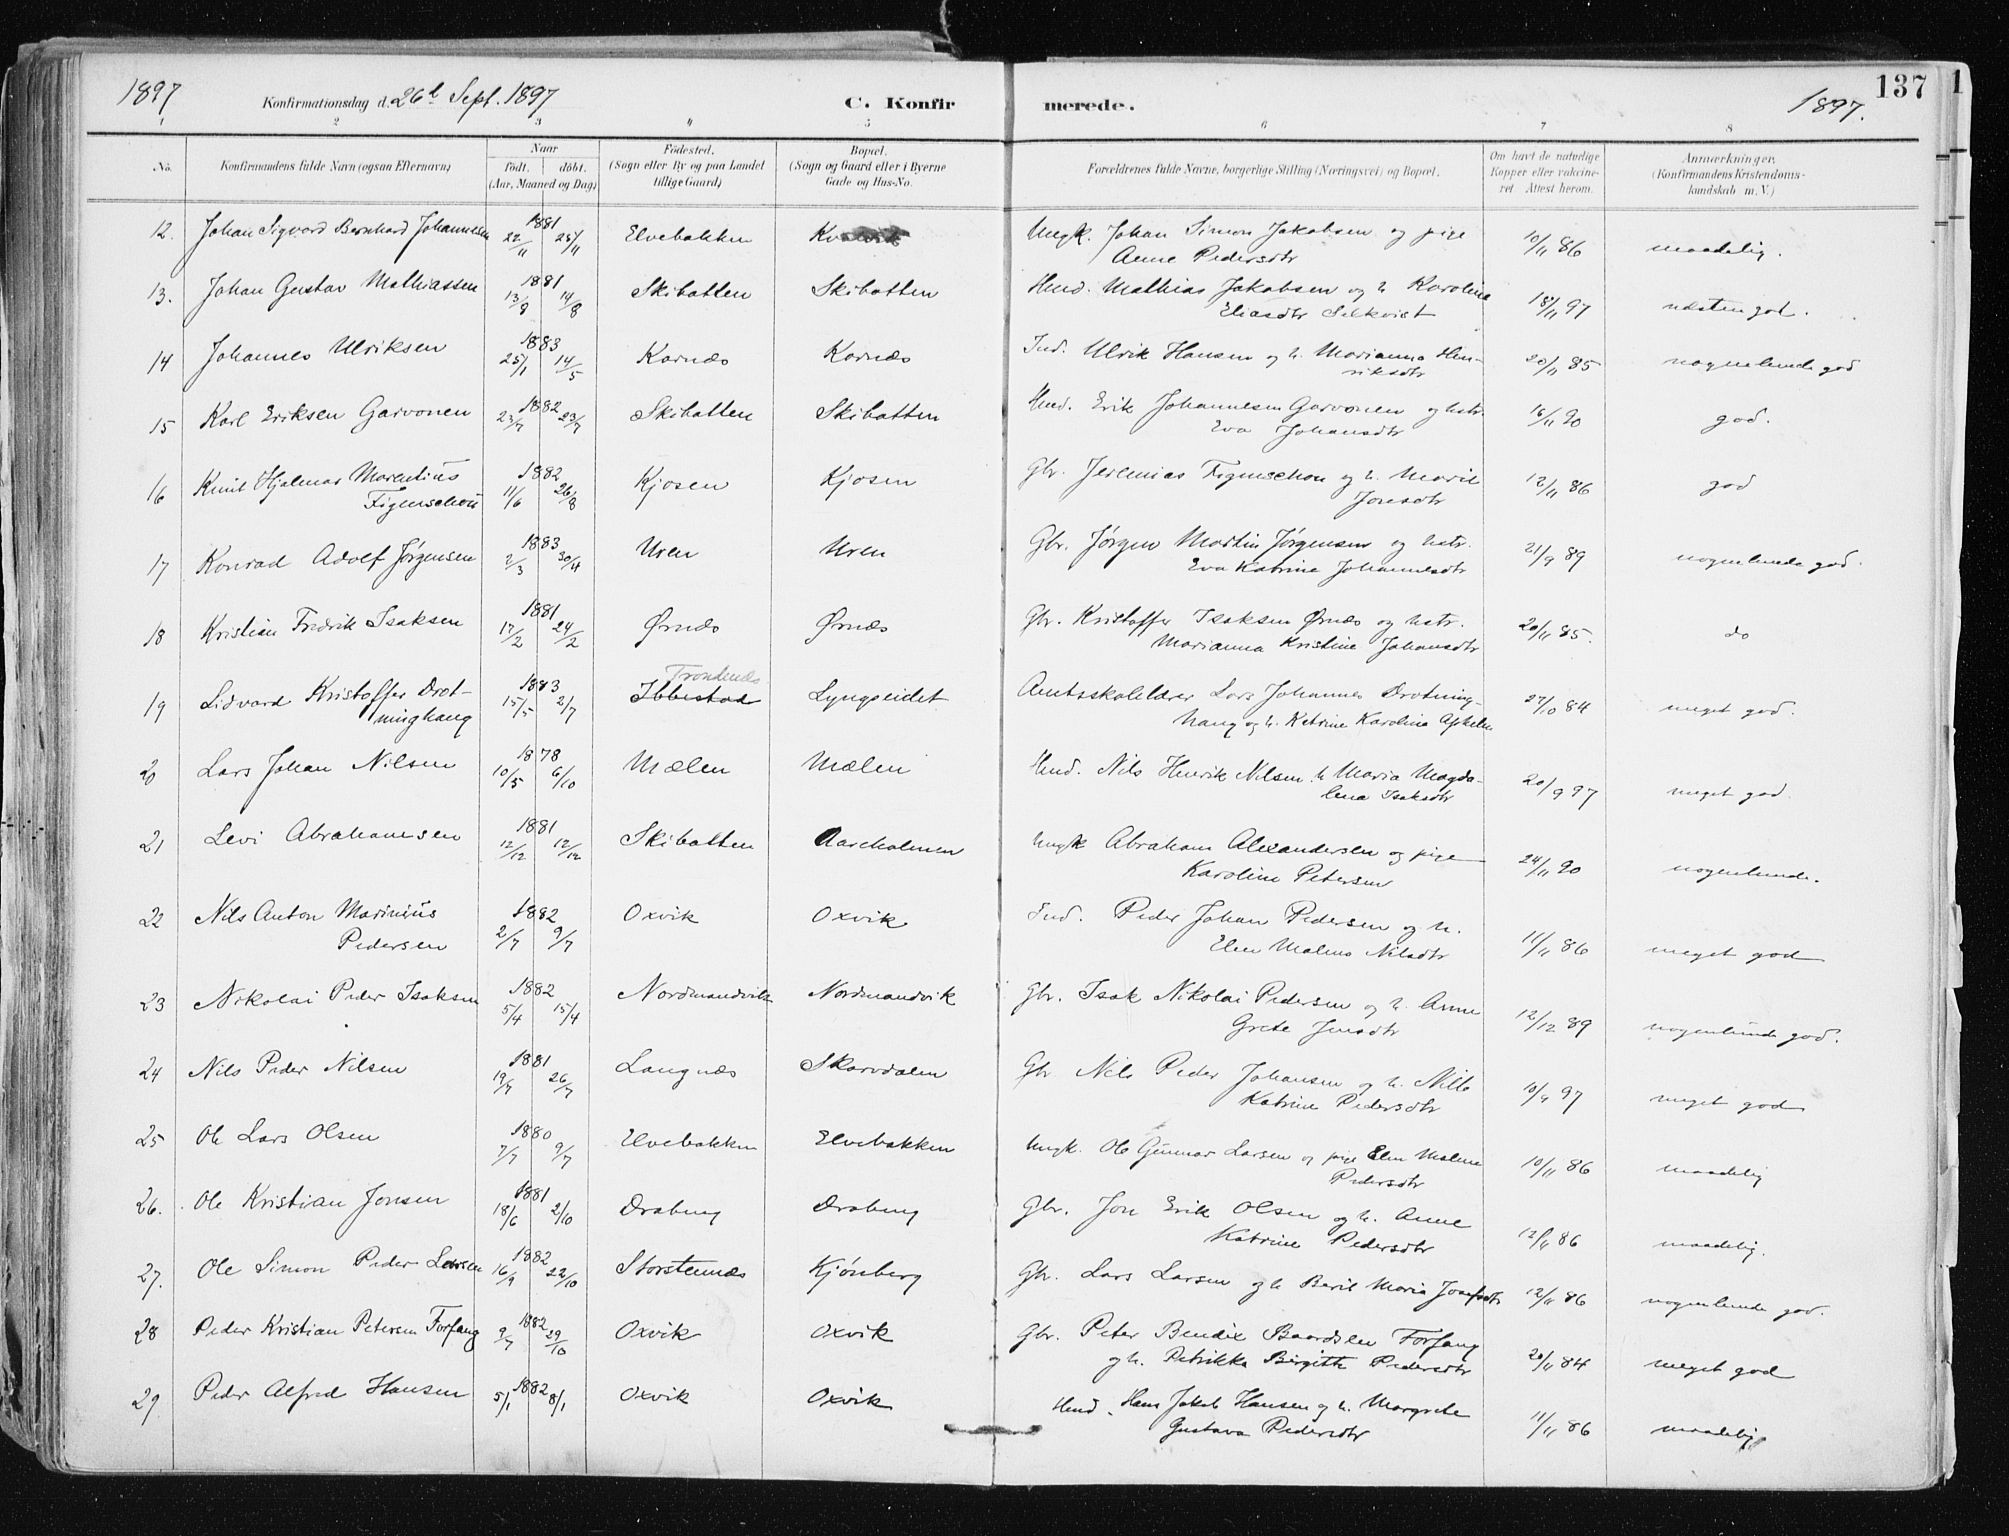 1897 Konfirmationsdag d. 26de Sept. 1897 C. Konfir merede. 1897. 137
1 2 3 4 5 6 7 8
No. Konfirmandens fulde Navn (ogsaa Efternavn) Naar født. døbt. (Aar, Maaned og Dag) Födested. (Sogn eller By og paa Landet tillige Gaard) Bopæl. (Sogn og Gaard eller i Byerne Gade og Hus-No. Forældrenes fulde Navne, borgerlige Stilling (Næringsvei) og Bopæl. Om havt de naturlige Kopper eller vaccineret. Attest herom. Anmærkninger. (Konfirmandens Kristendomskundskab m. V.)
12. Johan Sigvard Bernhard Johannesen 1881 22/11 25/11 Elvebakken Ungk. Johan Simon Jakobsen og pige 10/11 86 maadelig.
Anne Pedersdtr
13. Johan Gustav Mathiassen 1881 13/8 14/8 Skibotten Skibotten Hmd. Mathias Jakobsen og h. Karolina 18/11 97 næsten god.
Eliasdtr Selkvist
14 Johannes Ulriksen 1883 25/1 14/5 Kornæs Kornæs Ind. Ulrik Hansen og h. Marianna Hen- 20/11 85 nogenlunde god
riksdtr
15 Karl Eriksen Garvonen 1882 23/7 23/7 Skibotten Skibotten Hmd. Erik Johannesen Garvonen og hstr. 16/11 90 god.
Eva Johansdtr
16 Knut Hjalmar Marentius 1882 11/6 26/8 Kjosen Kjosen Gbr. Jeremias Figenschou og h. Marit 12/11 86 god
Figenschou Jonsdtr
17 Konrad Adolf Jørgensen 1883 2/3 30/4 Uren Uren Gbr. Jørgen Martin Jørgensen og hstr. 21/9 89 nogenlunde god.
Eva Katrine Johannesdtr
18 Kristian Fredrik Isaksen 1881 17/2 24/2 Ørnæs Ørnæs Gbr. Kristoffer Isaksen Ørnæs og hstr. 20/11 85. do
Marianna Kristine Johansdtr
Trondenæs
19 Lidvard Kristoffer Drot- 1883 15/5 2/7 Ibbestad Lyngseidet Amtsskolelærer Lars Johannes Drotning- 27/10 84 meget god.
ninghaug haug og h. Katrine Karolina
20 Lars Johan Nilsen 1878 10/5 6/10 Mælen Mælen Hmd. Nils Henrik Nilsen h Maria Magda- 20/9 97 meget god.
lena Isaksdtr
21 Levi Abrahamsen 1881 12/12 12/12 Skibotten Aarholmen Ungk Abraham Alexandersen og pige 24/11 90 nogenlunde.
Karoline Petersen
22 Nils Anton Marinius 1882 2/7 9/7 Oxvik Oxvik Ind. Peder Johan Pedersen og h. 11/11 86 meget god
Pedersen Elen Malena Nilsdtr
23 Nikolai Peder Isaksen 1882 5/4 15/4 Nordmandvik Nordmandvik Gbr. Isak Nikolai Pedersen og h. Anne 12/12 89 nogenlunde god.
Grete Jensdtr
24 Nils Peder Nilsen 1881 19/7 26/7 Langnæs Skarvdalen Gbr Nils Peder Johansen og h. Nille 10/9 97 meget god
Katrine Pedersdtr
25 Ole Lars Olsen 1880 7/7 9/7 Elvebakken Elvebakken Ungk. Ole Gunnar Larsen og pige Elen Malena 10/11 86 maadelig
Pedersdtr
26. Ole Kristian Jonsen 1881 18/6 2/10 Draberg Draberg Gbr. Jon Erik Olsen og h. Anne 12/11 86 maadelig.
Katrine Pedersdtr
27. Ole Simon Peder Larsen 1882 16/9 22/10 Storstennæs Kjønberg Gbr. Lars Larsen og h Berit Maria Josefsdtr 12/11 86 nogenlunde god.
28 Peder Kristian Petersen Forfang 1882 9/7 29/10 Oxvik Oxvik Gbr. Peter Bendix Baardsen Forfang 20/11 84 meget god
og h. Petrikka Birgitte Pedersdtr
29 Peder Alfred Hansen 1882 5/1 8/1 Oxvik Oxvik Hmd. Hans Jakob Hansen og h. Margrete 11/11 86 maadelig
Gustava Pedersdtr